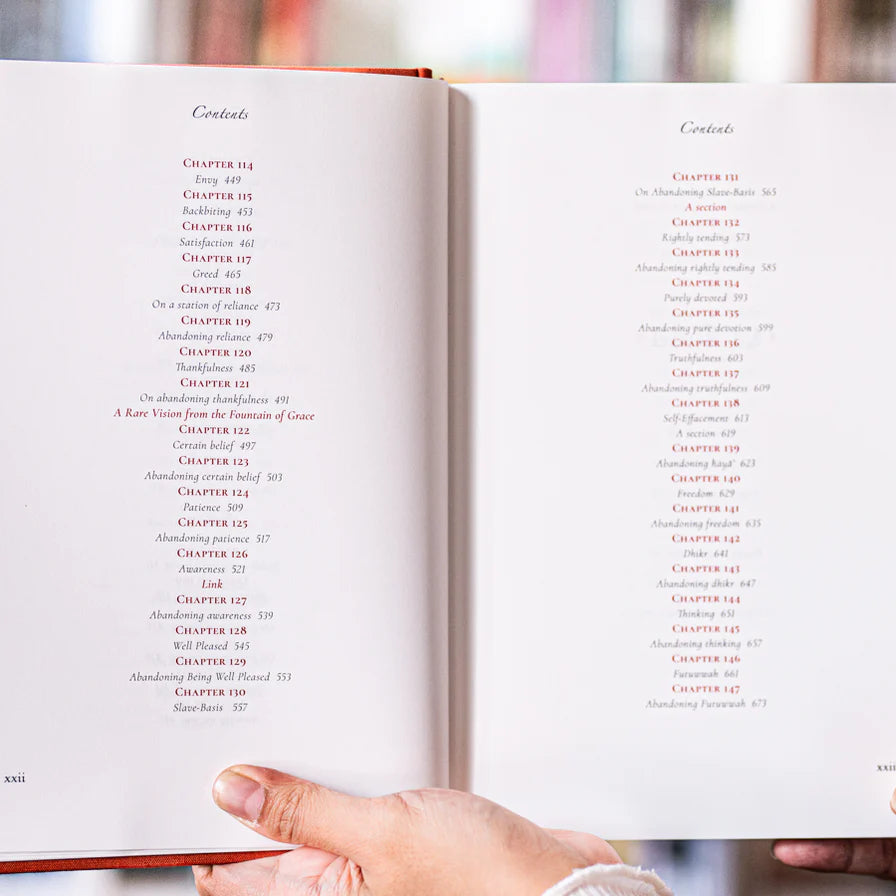 Contents
CHAPTER 114
Envy 449
CHAPTER 115
Backbiting 453
CHAPTER 116
Satisfaction 461
CHAPTER 117
Greed 465
CHAPTER 118
On a station of reliance 473
CHAPTER 119
Abandoning reliance 479
CHAPTER 120
Thankfulness 485
CHAPTER 121
On abandoning thankfulness 491
A Rare Vision from the Fountain of Grace
CHAPTER 122
Certain belief 497
CHAPTER 123
Abandoning certain belief 503
CHAPTER 124
Patience 509
CHAPTER 125
Abandoning patience 517
CHAPTER 126
Awareness 521
Link
CHAPTER 127
Abandoning awareness 539
CHAPTER 128
Well Pleased 545
CHAPTER 129
Abandoning Being Well Pleased 553
CHAPTER 130
Slave-Basis 557
xxii
Contents
CHAPTER 131
On Abandoning Slave-Basis 565
A section
CHAPTER 132
Rightly tending 573
CHAPTER 133
Abandoning rightly tending 585
CHAPTER 134
Purely devoted 593
CHAPTER 135
Abandoning pure devotion 599
CHAPTER 136
Truthfulness 603
CHAPTER 137
Abandoning truthfulness 609
CHAPTER 138
Self-Effacement 613
A section 619
CHAPTER 139
Abandoning ḥayāʾ 623
CHAPTER 140
Freedom 629
CHAPTER 141
Abandoning freedom 635
CHAPTER 142
Dhikr 641
CHAPTER 143
Abandoning dhikr 647
CHAPTER 144
Thinking 651
CHAPTER 145
Abandoning thinking 657
CHAPTER 146
Futuwwah 661
CHAPTER 147
Abandoning Futuwwah 673